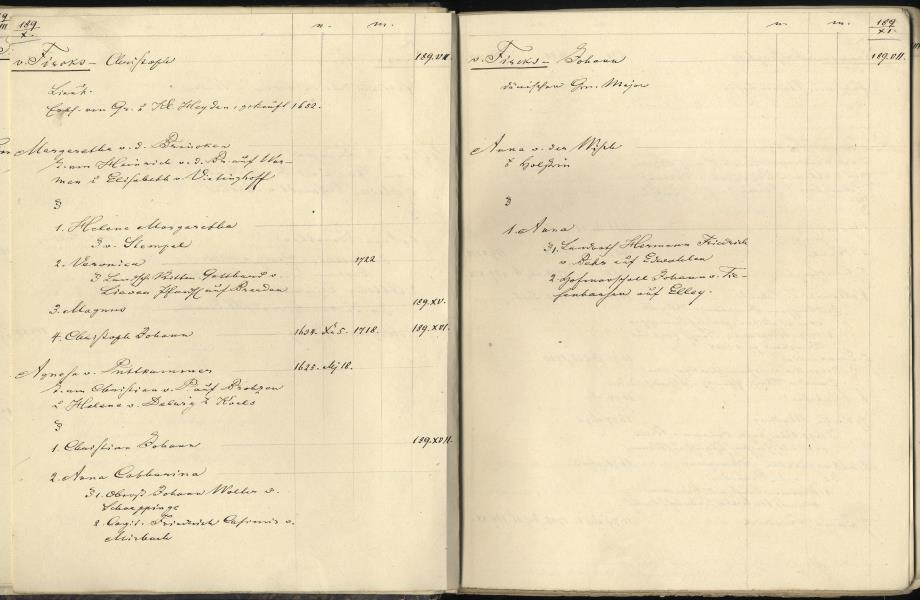 189
X.
n.
m.
v. Fircks – Christoph
189.VII.
Lieut.
Erbh. von Gr. & Kl. Heyden, gekauft 1652.
Margaretha v. d. Brincken
Heinrich v. d. Br. auf
men & Elisabeth v. Vietinghoff
1. Helene Margaretha
v. Stempel
2. Veronica
1722
Gotthard v.
Lieven auf Bersen
3. Magnus
189.XV.
4. Christoph Johann
1634. XI 5. 1718.
189.XVI.
Agnesa v. Puttkammer
1625. Mj 18.
Christian v. P. auf
& Helene v.
1. Christian Johann
189.XVII.
2. Anna Catharina
1. Oberst Johann Wolter v.
Schoeppinge
2. Capit. Friedrich Casimir v.
Mirbach
n.
m.
189
XI.
v. Fircks – Johann
189.VII.
dänischer Gen. Major
Anna v. der Wisch
Holstein
1. Anna
1. Landrath Hermann Friedrich
v. Behr auf Edwahlen
2. Hofmarschall Johann v. Tie-
senhausen auf Elley.